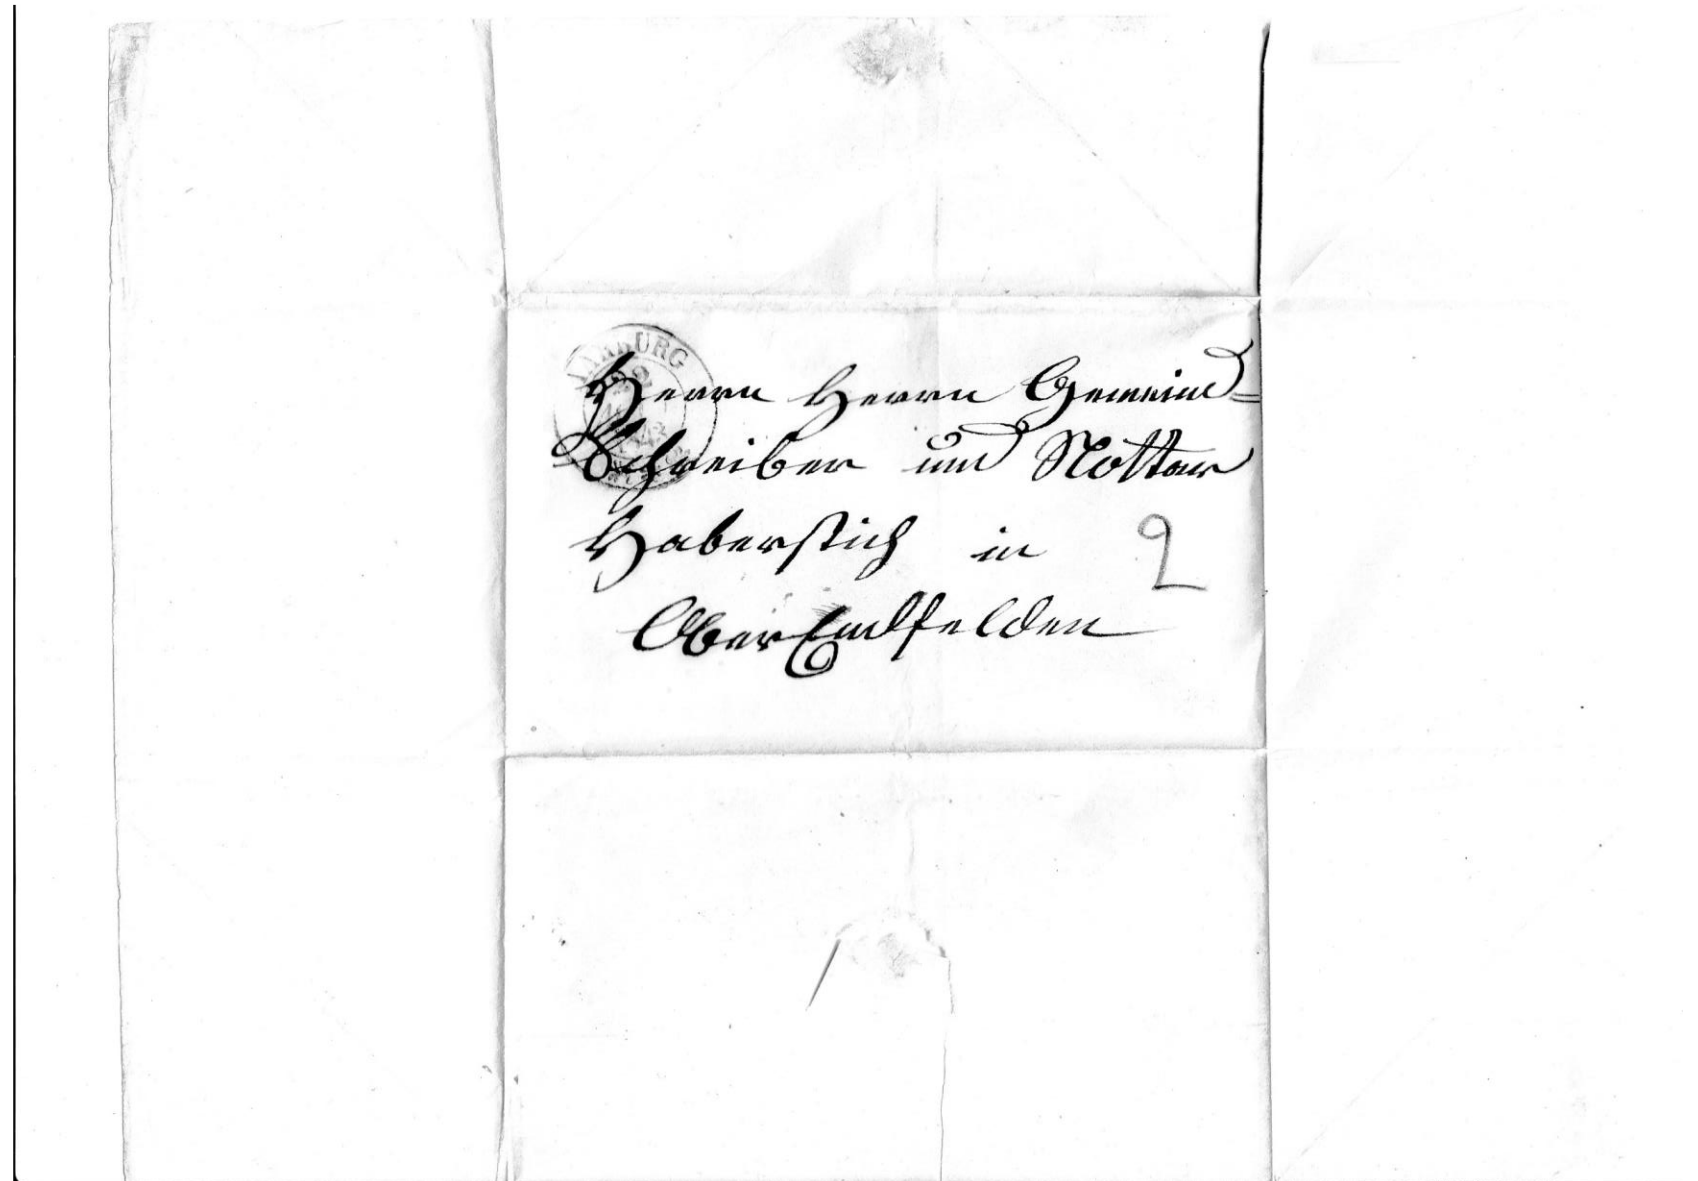 AARBURG
22
Herrn Herrn Gemeind=
Schreiber und Nottar
Haberstich in
2
Ober Endfelden